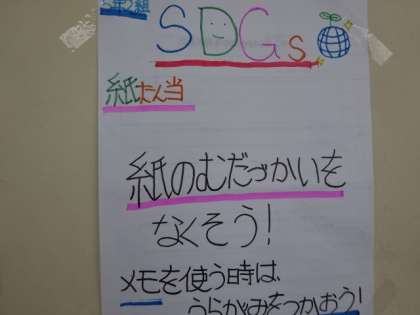 SDGs
紙たん当
紙のむだづかいを
なくそう!
メモを使う時は、
うらがみをつかおう!